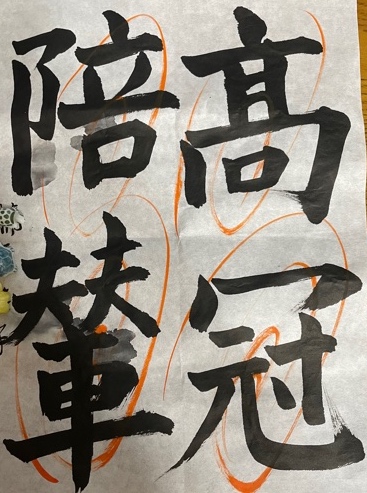 高冠
陪輦